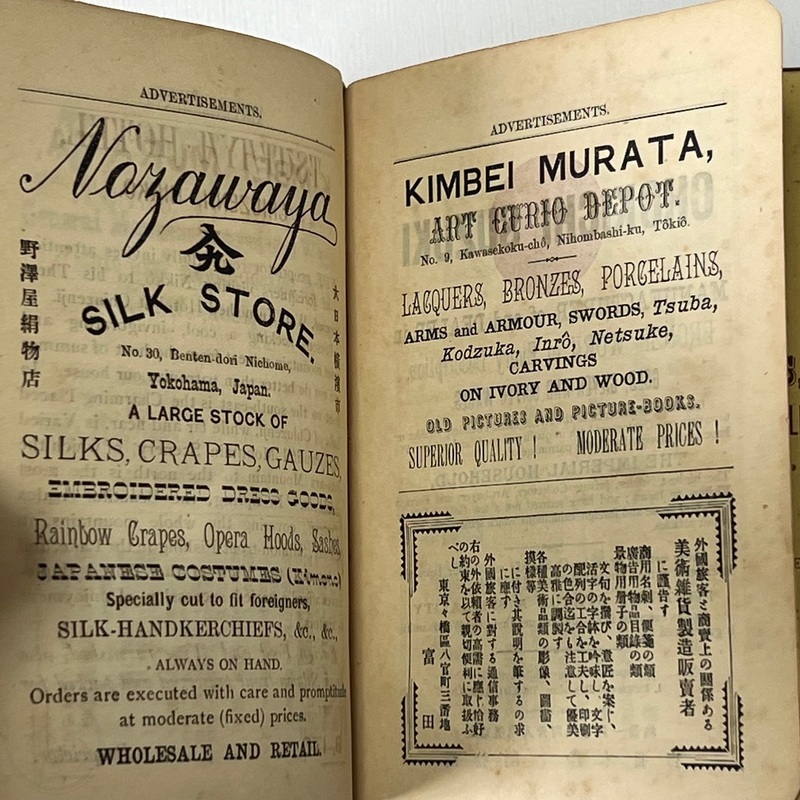 ADVERTISEMENTS.
Nozawaya
SILK STORE.
野澤屋絹物店
大日本橫濱市
No. 30, Benten-dori Nichome,
Yokohama, Japan.
A LARGE STOCK OF
SILKS, CRAPES, GAUZES,
EMBROIDERED DRESS GOODS,
Rainbow Crapes, Opera Hoods, Sashes,
JAPANESE COSTUMES (Kimono)
Specially cut to fit foreigners,
SILK-HANDKERCHIEFS, &c., &c.,
ALWAYS ON HAND.
Orders are executed with care and promptitude
at moderate (fixed) prices.
WHOLESALE AND RETAIL.
ADVERTISEMENTS.
KIMBEI MURATA,
ART CURIO DEPOT.
No. 9, Kawasekoku-chô, Nihombashi-ku, Tôkiô.
LACQUERS, BRONZES, PORCELAINS,
ARMS and ARMOUR, SWORDS, Tsuba,
Kodzuka, Inrô, Netsuke,
CARVINGS
ON IVORY AND WOOD.
OLD PICTURES AND PICTURE-BOOKS.
SUPERIOR QUALITY! MODERATE PRICES!
外國旅客と商賣上の關係ある
美術雜貨製造販賣者
に謹告す
商用名刺、便箋の類
廣告用物品目錄の類
景物用册子の類
文句を撰び、意匠を案じ、
活字の字躰を吟味し、文字
配列の工合を工夫し、印刷
の色合迄をも注意して優美
高雅に調製す
各種美術品類の彫像、圖畵、
摸樣等
に付き其說明を筆するの求
に應ず
外國旅客に對する通信事務
右の外依賴者の高需に應じ恰好
の約束を以て親切便利に取扱ふ
べし
東京々橋區八官町三番地
富田